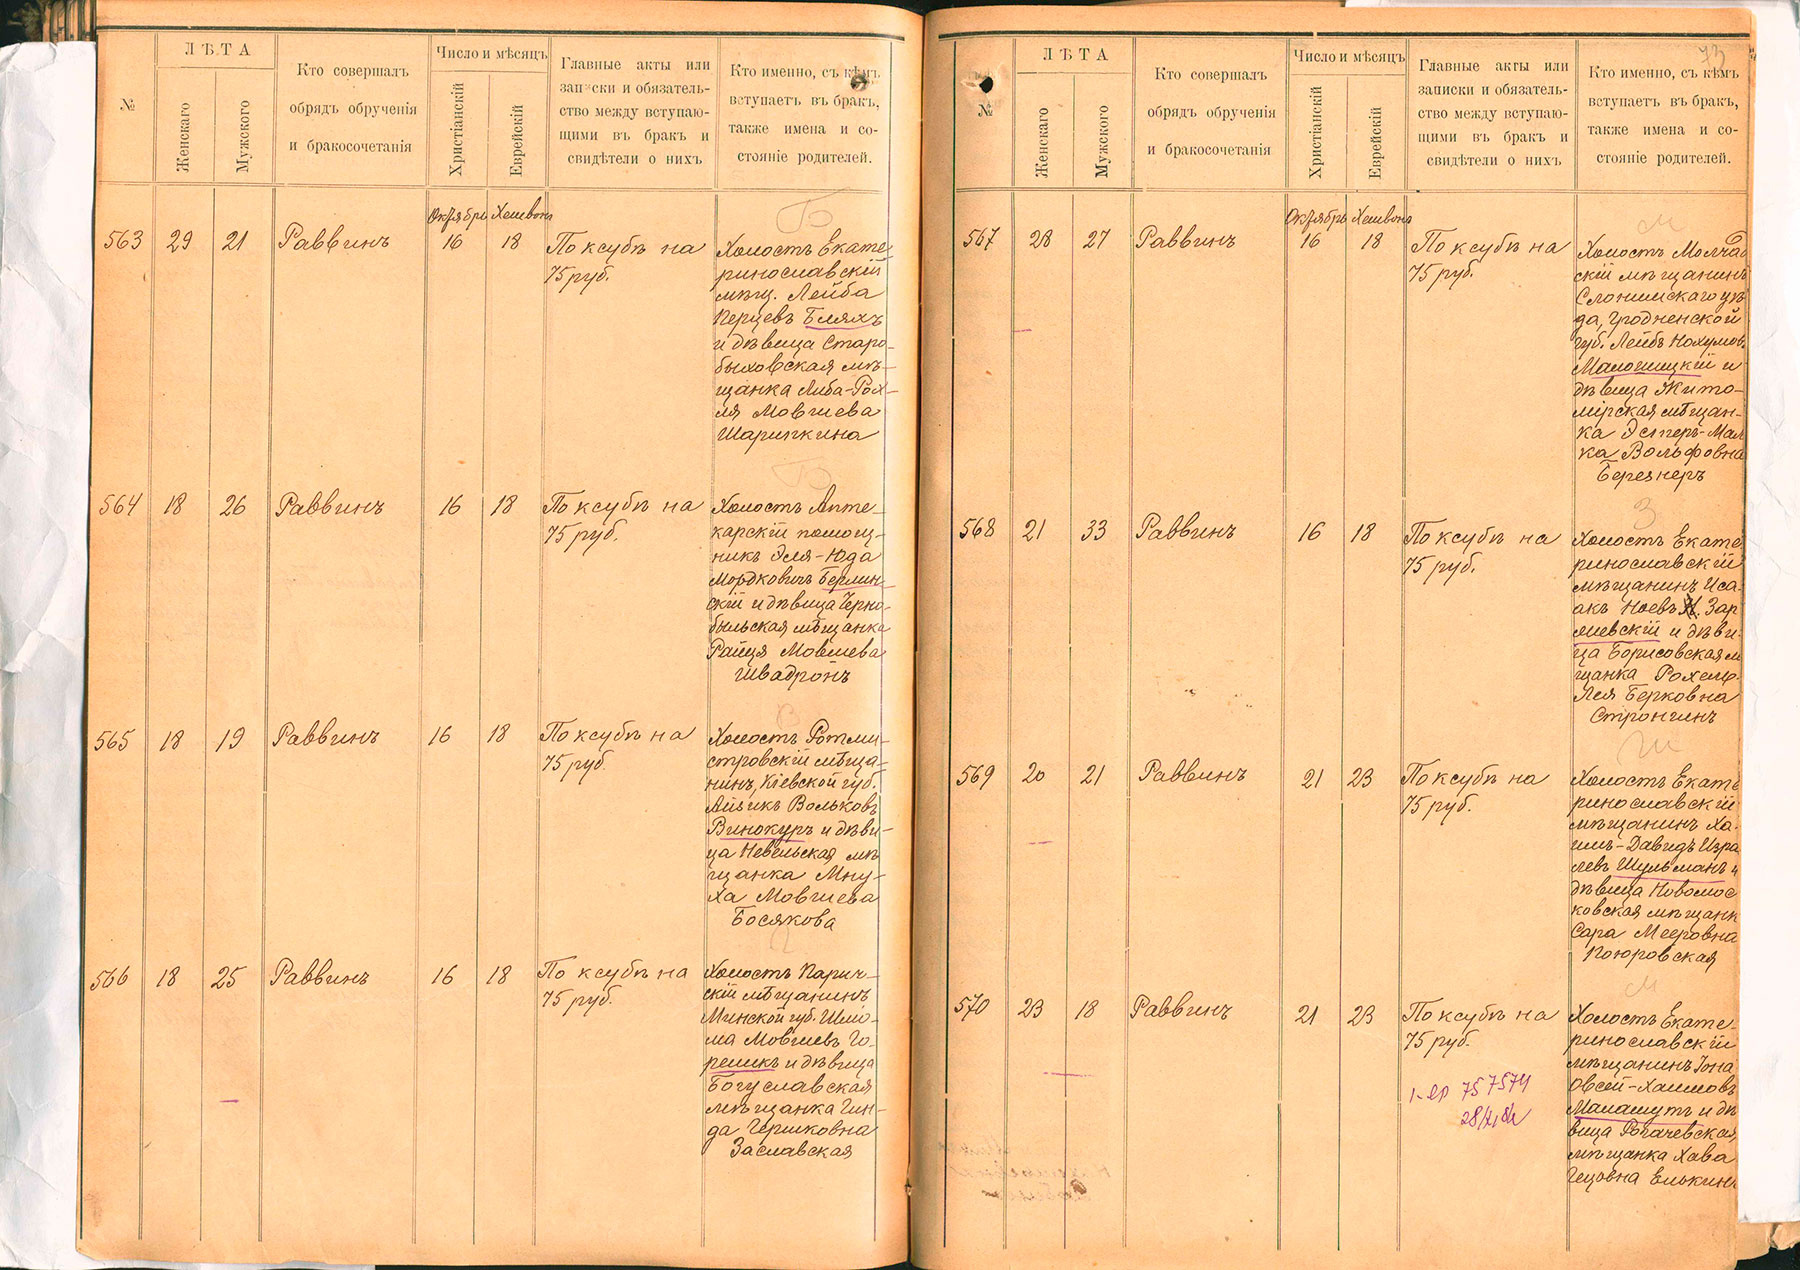 №
ЛѢТА
Женскаго
Мужского
Кто совершалъ
обрядъ обрученія
и бракосочетанія
Число и мѣсяцъ
Христіанскій
Еврейскій
Главные акты или
записки и обязатель-
ство между вступаю-
щими въ бракъ и
свидѣтели о нихъ
Кто именно, съ кѣмъ
вступаетъ въ бракъ,
также имена и со-
стояніе родителей.
Октябрь Хешвонъ
Б
563 29 21 Раввинъ 16 18 По ксубѣ на
75 руб.
Холостъ Екате-
ринославскій
мѣщ. Лейба
Перцевъ Бляхъ
и дѣвица Старо-
быховская мѣ-
щанка Либа-Рох-
ля Мовшева
Шарипкина
Б
564 18 26 Раввинъ 16 18 По ксубѣ на
75 руб.
Холостъ Апте-
карскій помощ-
никъ Эля-Юда
Мордковичъ Берлин-
скій и дѣвица Черно-
быльская мѣщанка
Райця Мовшева
Швадронъ
В
565 18 19 Раввинъ 16 18 По ксубѣ на
75 руб.
Холостъ Ротми-
стровскій мѣща-
нинъ, Кіевской губ.
Айзикъ Вольковъ
Винокуръ и дѣви-
ца Невельская мѣ-
щанка Мну-
ха Мовшева
Босякова
566 18 25 Раввинъ 16 18 По ксубѣ на
75 руб.
Холостъ Парич-
скій мѣщанинъ
Минской губ. Шлио-
ма Мовшевъ Го-
решикъ и дѣвица
Богуславская
мѣщанка Гин-
да Гершковна
Заславская
73
№
ЛѢТА
Женскаго
Мужского
Кто совершалъ
обрядъ обрученія
и бракосочетанія
Число и мѣсяцъ
Христіанскій
Еврейскій
Главные акты или
записки и обязатель-
ство между вступаю-
щими въ бракъ и
свидѣтели о нихъ
Кто именно, съ кѣмъ
вступаетъ въ бракъ,
также имена и со-
стояніе родителей.
Октябрь Хешвонъ
М
567 28 27 Раввинъ 16 18 По ксубѣ на
75 руб.
Холостъ Молчад
скій мѣщанинъ
Слонимскаго уѣз
да, Гродненской
губ. Лейбъ Нохумов.
Малогицкій и
дѣвица Жито-
мірская мѣщан-
ка Эстеръ-Мал
ка Вольфовна
Березнеръ
З
568 21 33 Раввинъ 16 18 По ксубѣ на
75 руб.
Холостъ Екате
ринославскій
мѣщанинъ Иса-
акъ Ноевъ Зар
миевскій и дѣви-
ца Борисовская м
щанка Рохель-
Лея Берковна
Стронгинъ
Ш
569 20 21 Раввинъ 21 23 По ксубѣ на
75 руб.
Холостъ Екате
ринославскій
мѣщанинъ Ха-
имъ-Давидъ Изра
левъ Шульманъ и
дѣвица Новомос
ковская мѣщанк
Сара Мееровна
Поюровская
М
570 23 18 Раввинъ 21 23 По ксубѣ на
75 руб.
Холостъ Екате-
ринославскій
мѣщанинъ Іона
Овсей-Хаимовъ
Малашутъ и дѣ
вица Рогачевская
мѣщанка Хава
Гецовна Елькинъ
757574